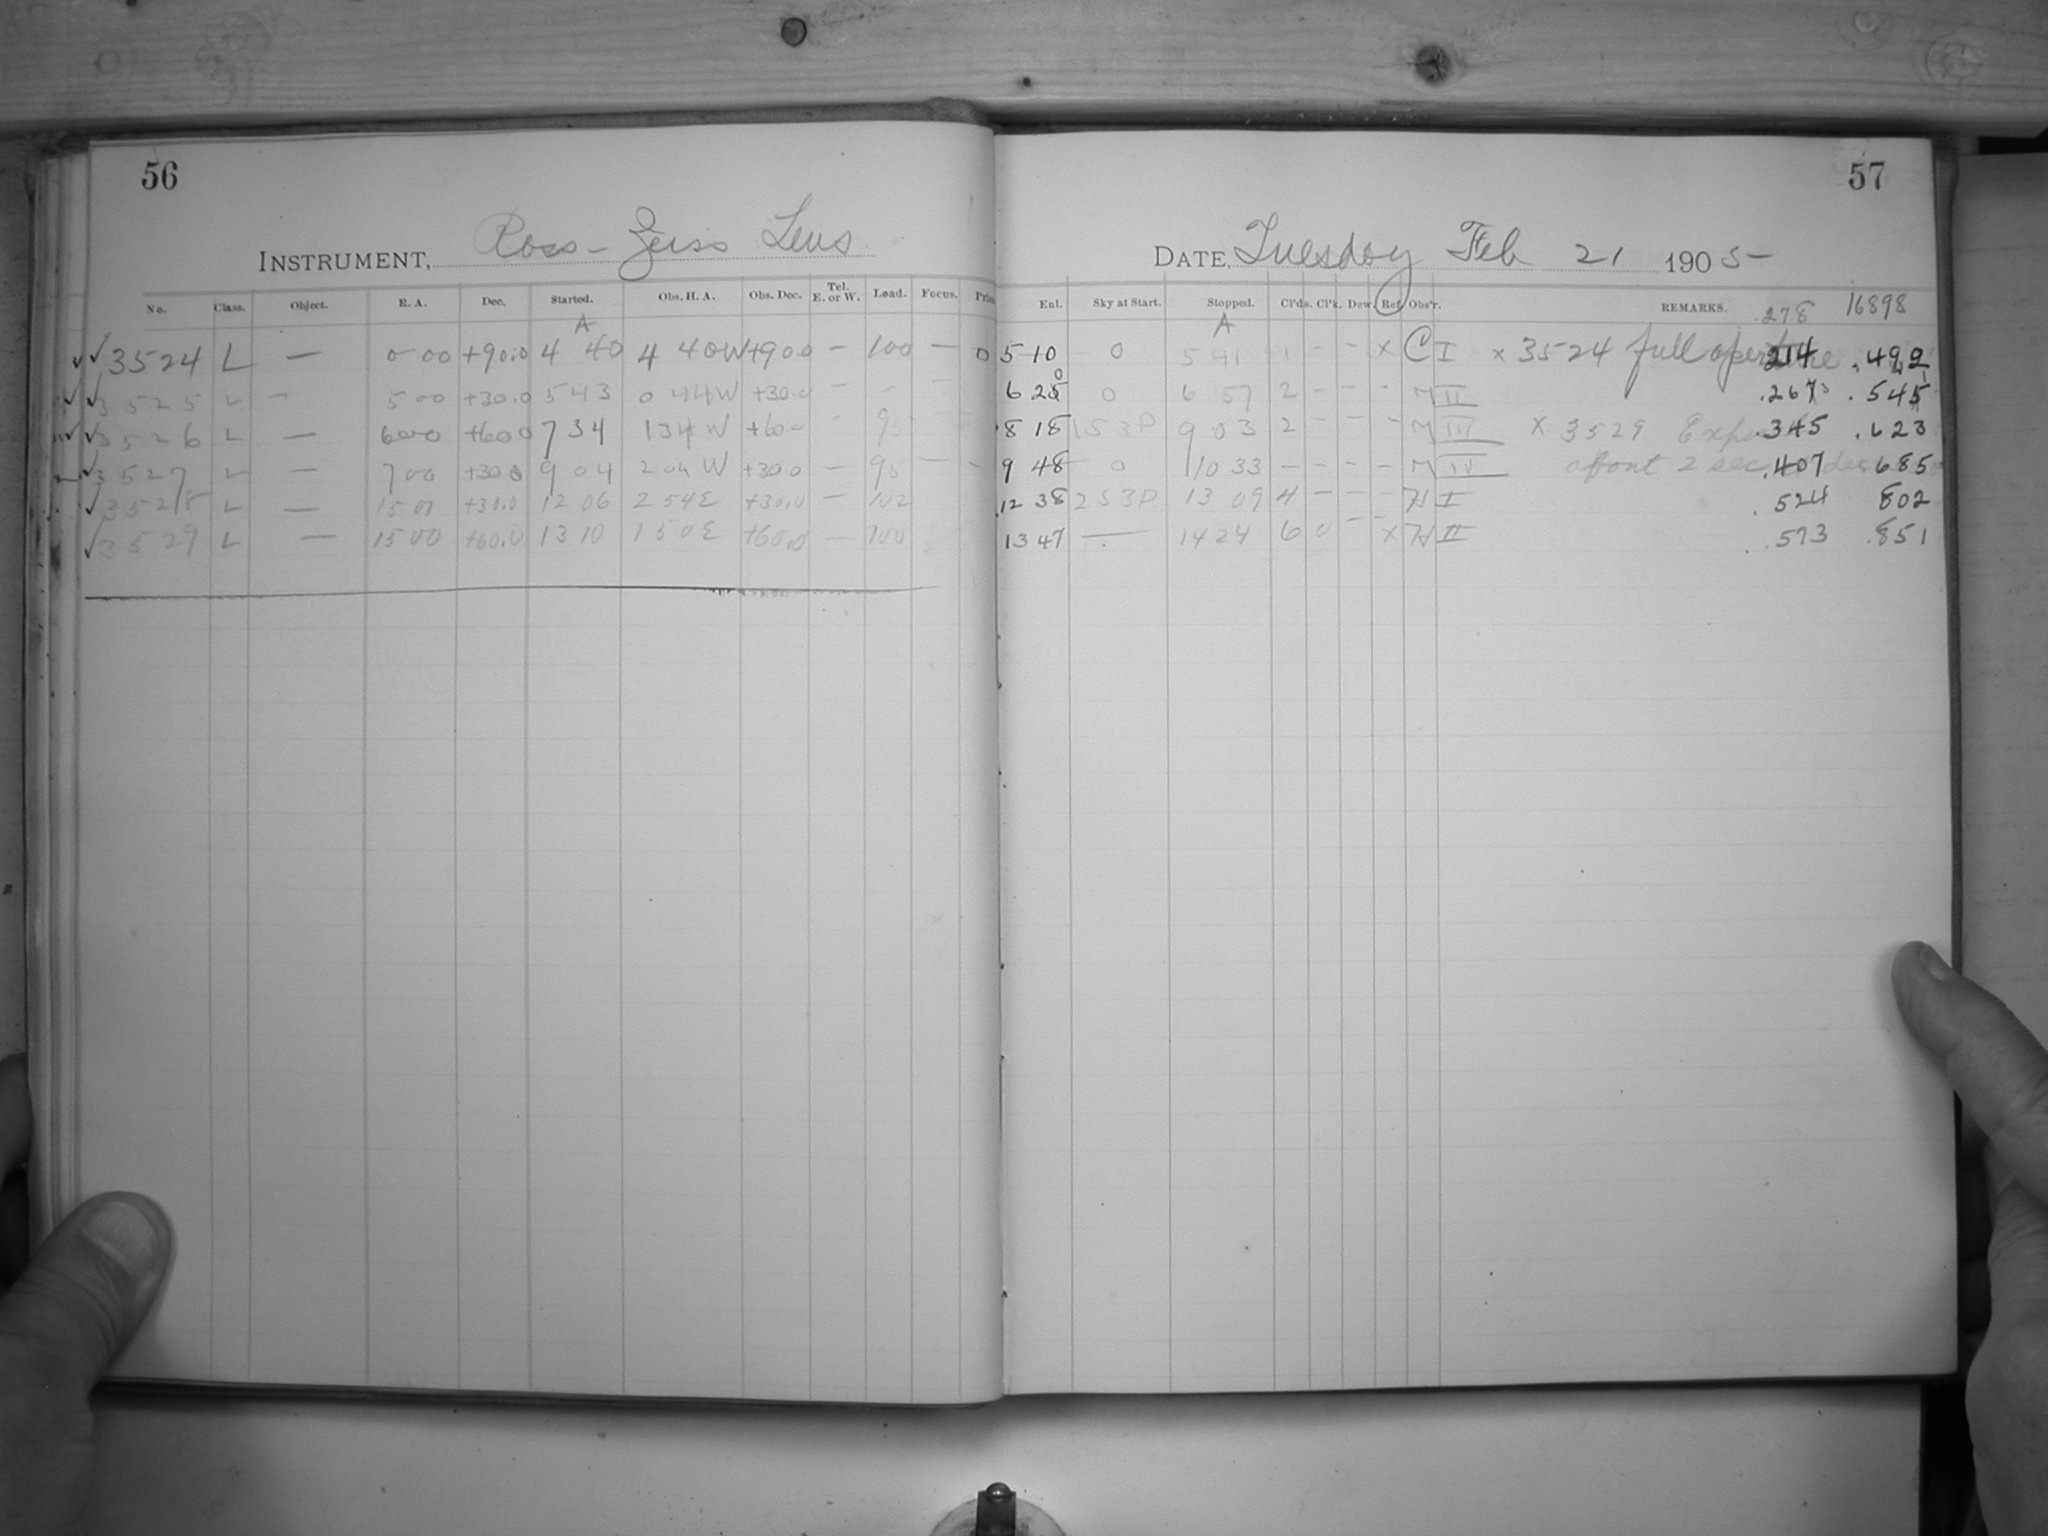 56
INSTRUMENT, Ross-Zeiss Lens
No. Class. Object. R. A. Dec. Started. Obs. H. A. Obs. Dec. Tel. E. or W. Load. Focus.
A
✓✓3524 L — 0 00 +90.0 4 40 4 40W +90.0 — 100 —
✓✓3525 L — 5 00 +30.0 5 43 0 44W +30.0 — —
✓✓3526 L — 6 00 +60.0 7 34 1 34 W +60.0 — 95
✓3527 L — 7 00 +30.0 9 04 2 04 W +30.0 — 95 —
✓3528 L — 15 00 +30.0 12 06 2 54E +30.0 — 102
✓3529 L — 15 00 +60.0 13 10 1 50E +60.0 — 100
57
DATE, Tuesday Feb 21 1905-
Ent. Sky at Start. Stopped. Cl'ds. Cl'k. Dew. Ref. Obs'r. REMARKS. .278 16898
A
5 10 0 5 41 1 - - x C I x 3524 full aperture 214 .492
6 20 0 6 57 2 - - - M II .267 .545
8 18 1S3P 9 03 2 - - - M III x 3529 345 .623
9 48 0 10 33 - - - - M IV about 2 sec .407 685
12 38 2S3P 13 09 4 - - - H I .524 802
13 47 — 14 24 6 0 - x H II .573 .851